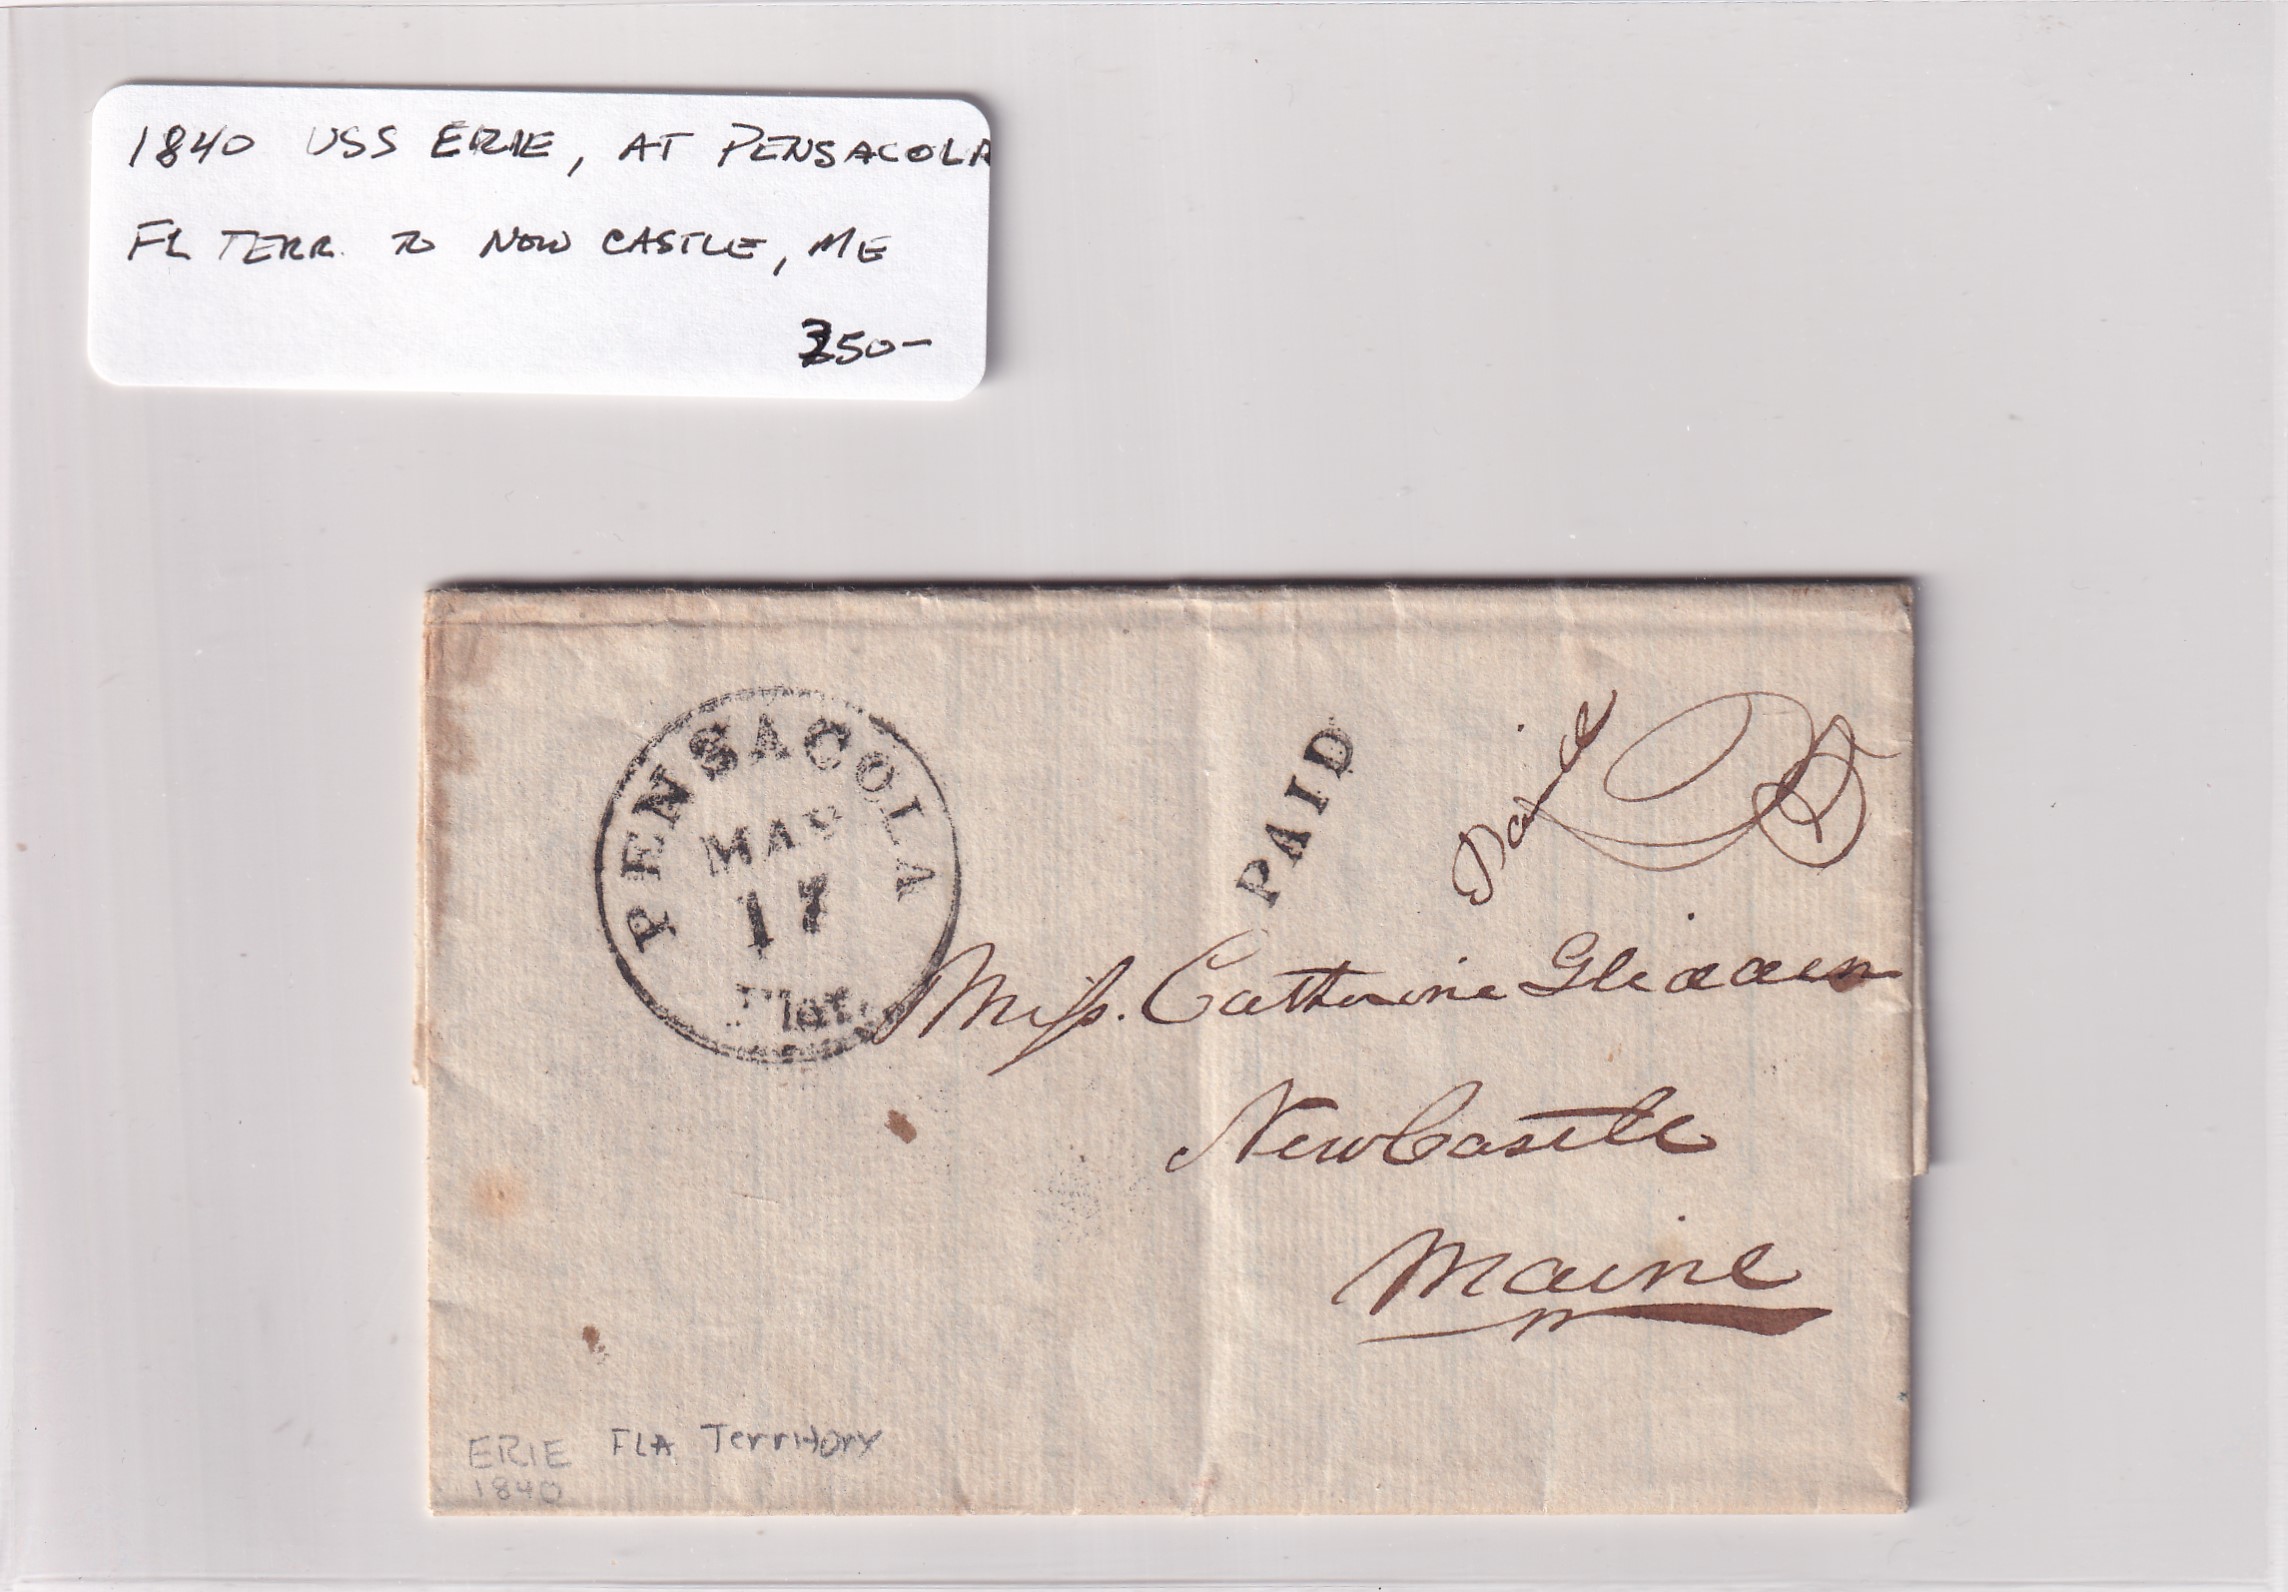 1840 USS ERIE, AT PENSACOLA
FL TERR. TO NEW CASTLE, ME
350-
PENSACOLA
MAR
17
Flor.
PAID
Paid
25
Miss. Catherine Glidden
NewCastle
Maine
ERIE FLA Territory
1840